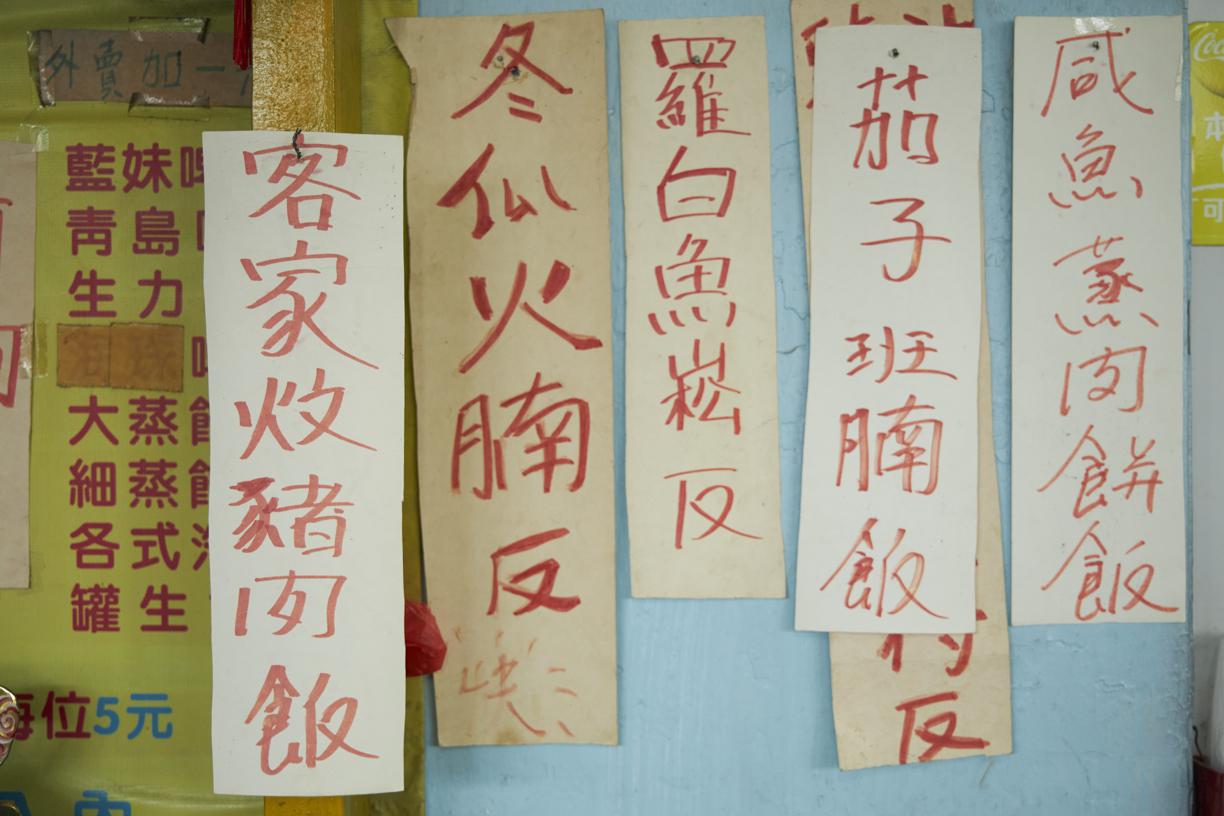 外賣加一
藍妹啤
青島啤
生力
大蒸餸
細蒸餸
各式
罐生
每位5元
客家炆豬肉飯
冬仙火腩反
羅白魚崧反
茄子班腩飯
反
咸魚蒸肉餅飯